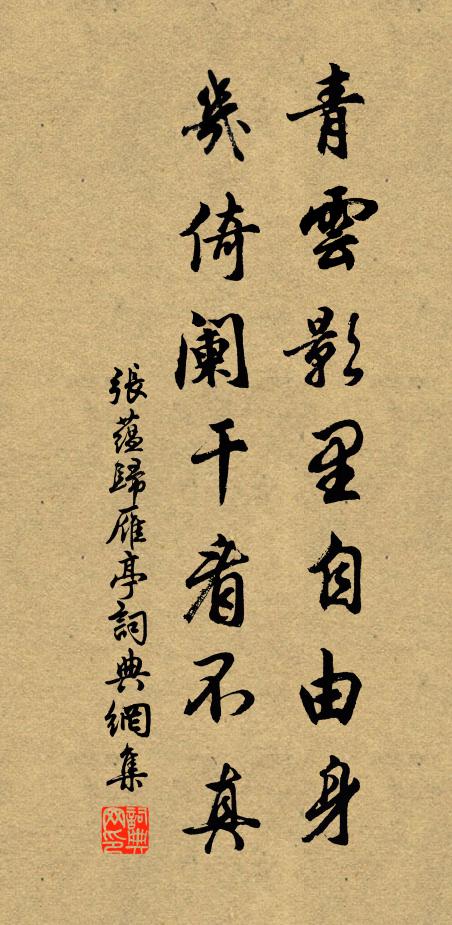 青雲影里自由身
幾倚阑干看不真
張蘊歸雁亭詞典網集
詞典网印